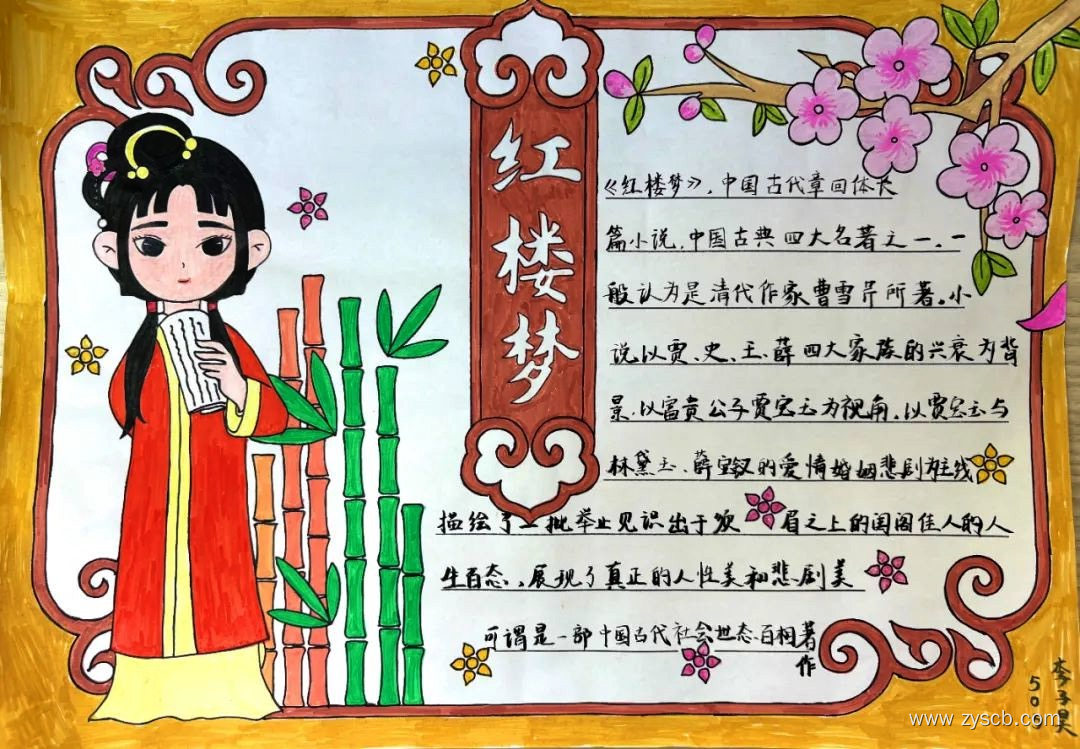 红楼梦
《红楼梦》，中国古代章回体长
篇小说，中国古典四大名著之一，一
般认为是清代作家曹雪芹所著。小
说以贾、史、王、薛四大家族的兴衰为背
景，以富贵公子贾宝玉为视角，以贾宝玉与
林黛玉、薛宝钗的爱情婚姻悲剧为主线
描绘了一批举止见识出于须眉之上的闺阁佳人的人
生百态，展现了真正的人性美和悲剧美
可谓是一部中国古代社会世态百相著
作
李子昊
www.zyscb.com